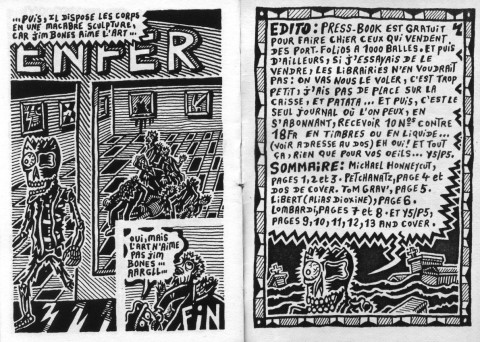 ...PUIS, IL DISPOSE LES CORPS
EN UNE MACABRE SCULPTURE,
CAR JIM BONES AIME L'ART...
ENFER
OUI, MAIS
L'ART N'AIME
PAS JIM
BONES...
AARGLL...
FIN
EDITO: PRESS-BOOK EST GRATUIT
POUR FAIRE CHIER CEUX QUI VENDENT
DES PORT-FOLIOS A 1000 BALLES. ET PUIS
D'AILLEURS, SI J'ESSAYAIS DE LE
VENDRE, LES LIBRAIRIES N'EN VOUDRAIT
PAS: ON VAS NOUS LE VOLER, C'EST TROP
PETIT; J'AIS PAS DE PLACE SUR LA
CAISSE, ET PATATA... ET PUIS, C'EST LE
SEUL JOURNAL OÙ L'ON PEUX, EN
S'ABONNANT, RECEVOIR 10 NOS CONTRE
18FR EN TIMBRES OU EN LIQUIDE...
(VOIR ADRESSE AU DOS) EH OUI! ET TOUT
ÇA, RIEN QUE POUR VOS OEILS... Y5/P5.
SOMMAIRE: MICHAEL HONNEYCUT,
PAGES 1, 2 ET 3. PETCHANATZ, PAGE 4 ET
DOS DE COVER. TOM GRAV', PAGE 5.
LIBERT (ALIAS DIOXINE), PAGE 6.
LOMBARDI, PAGES 7 ET 8. ET Y5/P5,
PAGES 9, 10, 11, 12, 13 AND COVER.